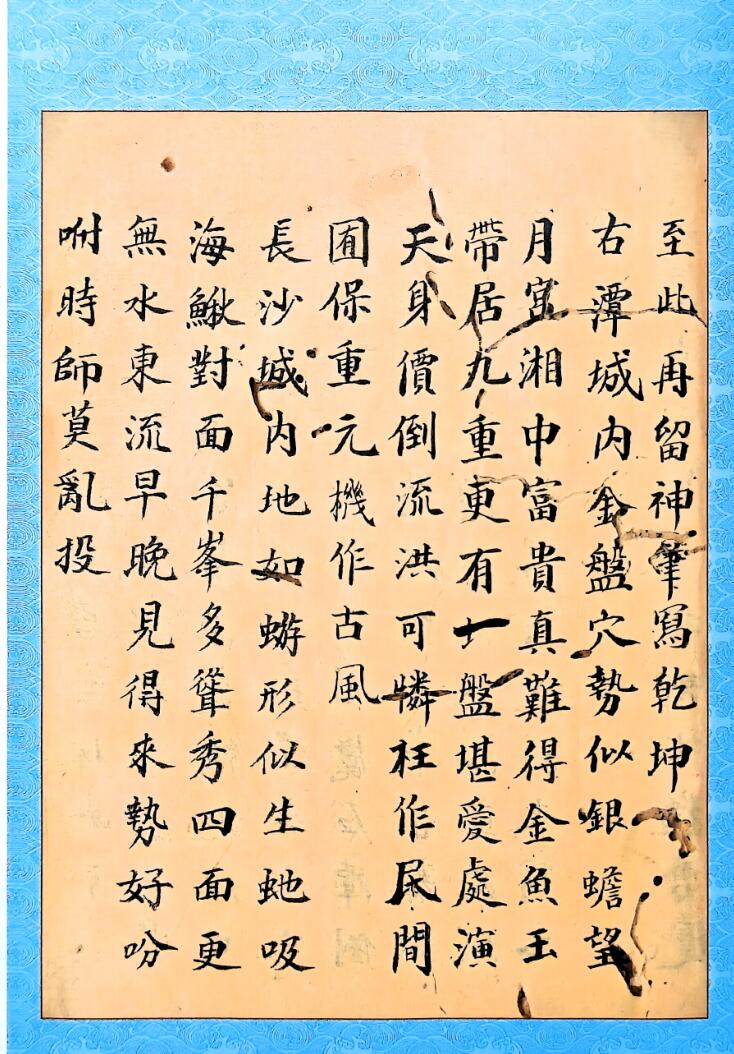 至此再留神筆寫乾坤
右潭城内金盤穴勢似銀蟾望
月宮湘中富貴真難得金魚玉
帶居九重更有一盤堪愛處演
天身價倒流洪可憐枉作民間
圃保重元機作古風
長沙城内地如蝣形似生虵吸
海鰍對面千峯多聳秀四面更
無水東流早晚見得來勢好吩
咐時師莫亂投